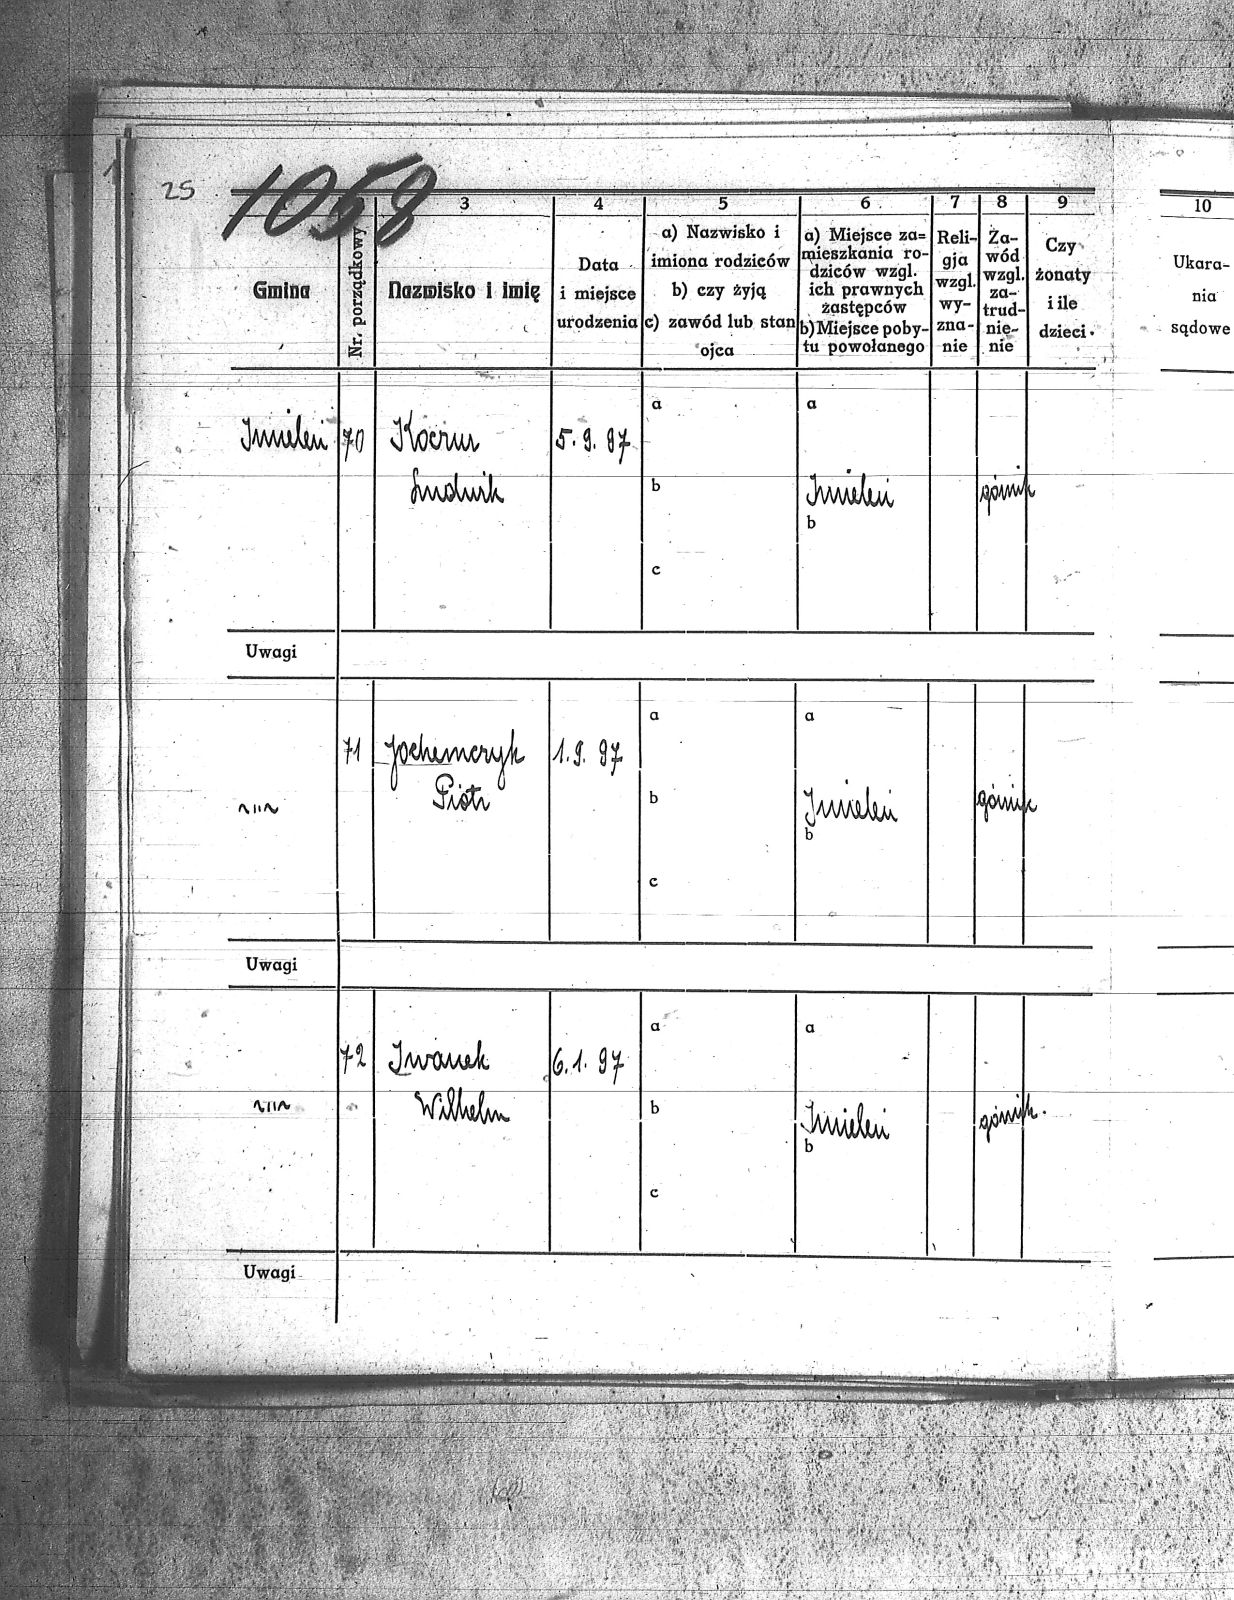 25
1058
3 4 5 6 7 8 9 10
Gmina
Nr. porządkowy
Nazwisko i imię
Data
i miejsce
urodzenia
a) Nazwisko i
imiona rodziców
b) czy żyją
c) zawód lub stan
ojca
a) Miejsce za=
mieszkania ro-
dziców wzgl.
ich prawnych
zastępców
b) Miejsce poby-
tu powołanego
Reli-
gja
wzgl.
wy-
zna-
nie
Za-
wód
wzgl.
za-
trud-
nie-
nie
Czy
żonaty
i ile
dzieci
Ukara-
nia
sądowe
a a
Imieleń 70 Koczur 5.9.97
Ludwik b Imieleń górnik
b
c
Uwagi
a a
71 Jochemczyk 1.9.97
~"~ Piotr b Imieleń górnik
b
c
Uwagi
a a
72 Iwanek 6.1.97
~"~ Wilhelm b Imieleń górnik.
b
c
Uwagi